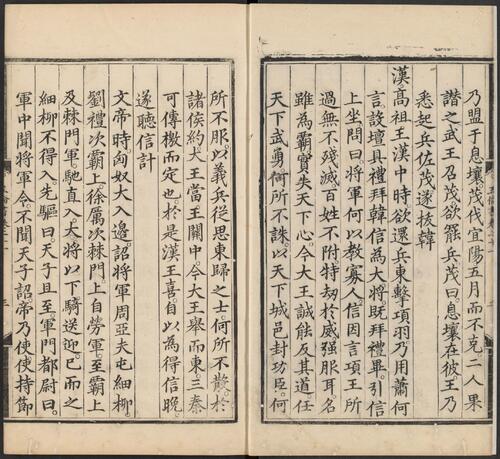 乃盟于息壤茂伐宜陽五月而不克二人果
譖之武王召茂欲罷兵茂曰息壤在彼王乃
悉起兵佐茂遂拔韓
漢高祖王漢中時欲還兵東擊項羽乃用蕭何
言設壇具禮拜韓信為大將既拜禮畢引信
上坐問曰將軍何以教寡人信因言項王所
過無不殘滅百姓不附特劫於威强服耳名
雖為霸實失天下心今大王誠能反其道任
天下武勇何所不誅以天下城邑封功臣何
所不服以義兵從思東歸之士何所不散於
諸侯約大王當王關中今大王舉而東三秦
可傳檄而定也於是漢王喜自以為得信晚
遂聽信計
文帝時匈奴大入邊詔將軍周亞夫屯細柳
劉禮次霸上徐厲次棘門上自勞軍至霸上
及棘門軍馳直入大將以下騎送迎已而之
細柳不得入先驅曰天子且至軍門都尉曰
軍中聞將軍令不聞天子詔帝乃使使持節